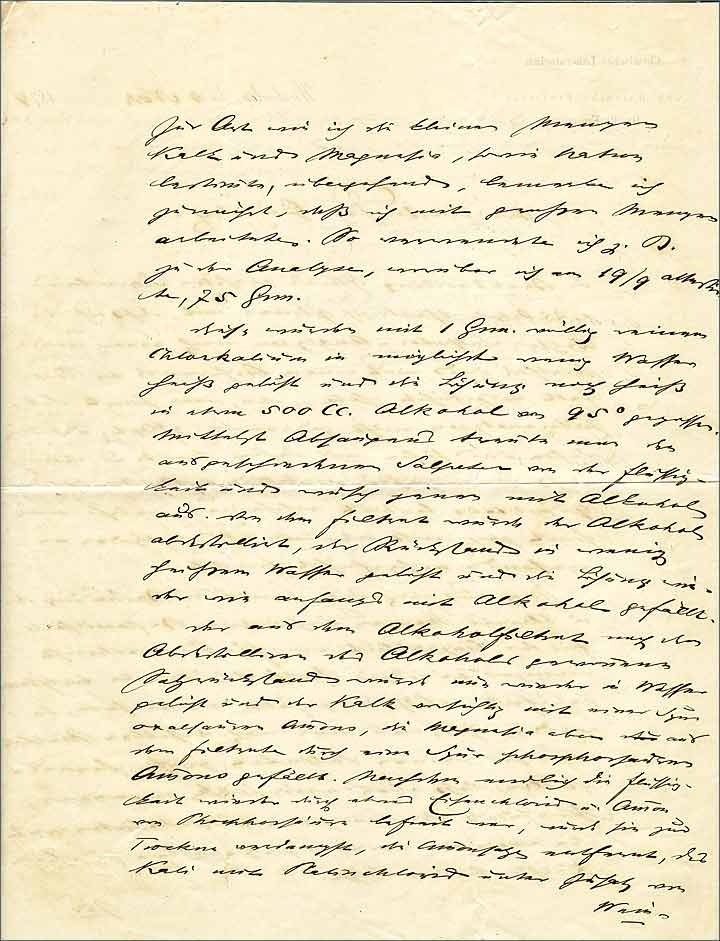 Zur Art wie ich die kleinen Mengen
Kalk und Magnesia, sowie Natron
bestimmte, übergehend, bemerke ich
zunächst, daß ich mit großen Mengen
arbeitete. So verwendete ich z. B.
zu der Analyse, worüber ich am 19/9
75 Grm.
wurden mit 1 Grm. völlig reinem
Chlorkalium in möglichst wenig Wasser
heiß gelöst und die Lösung noch heiß
in etwa 500 CC. Alkohol von 95° gegossen.
Mittelst Absaugens trennte man den
ausgeschiedenen Salpeter von der Flüssig-
keit und wusch jenen mit Alkohol
aus. Von dem Filtrat wurde der Alkohol
abdestillirt, der Rückstand in wenig
heißem Wasser gelöst und die Lösung wie-
der wie anfangs mit Alkohol gefällt.
Der aus dem Alkoholfiltrat nach dem
Abdestilliren des Alkohols gewonnene
Salzrückstand wurde nun wieder in Wasser
gelöst und der Kalk vorsichtig mit einer Spur
oxalsauren Amons, die Magnesia aber aus
dem Filtrate durch eine Spur phosphorsauren
Amons gefällt. Nachdem endlich die Flüssig-
keit wieder durch etwas Eisenchlorid u. Amon
von Phosphorsäure befreit war, wurde sie zur
Trockne verdampft, die Amonsalze entfernt, das
Kali mit Platinchlorid unter Zusatz von
Wein-